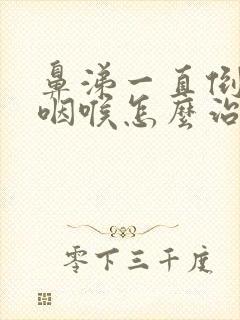 鼻涕一直倒
咽喉怎麼治
零下三千度